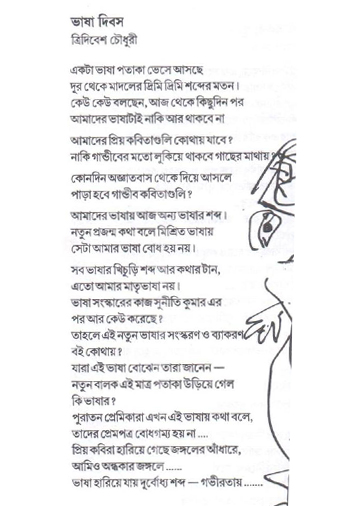 ভাষা দিবস
ত্রিদিবেশ চৌধুরী
একটা ভাষা পতাকা ভেসে আসছে
দূর থেকে মাদলের দ্রিমি দ্রিমি শব্দের মতন।
কেউ কেউ বলছেন, আজ থেকে কিছুদিন পর
আমাদের ভাষাটাই নাকি আর থাকবে না
আমাদের প্রিয় কবিতাগুলি কোথায় যাবে?
নাকি গান্ডীবের মতো লুকিয়ে থাকবে গাছের মাথায়?
কোনদিন অজ্ঞাতবাস থেকে দিয়ে আসলে
পাড়া হবে গান্ডীব কবিতাগুলি?
আমাদের ভাষায় আজ অন্য ভাষার শব্দ।
নতুন প্রজন্ম কথা বলে মিশ্রিত ভাষায়
সেটা আমার ভাষা বোধ হয় নয়।
সব ভাষার খিচুড়ি শব্দ আর কথার টান,
এতো আমার মাতৃভাষা নয়।
ভাষা সংস্কারের কাজ সুনীতি কুমার এর
পর আর কেউ করেছে?
তাহলে এই নতুন ভাষার সংস্করণ ও ব্যাকরণ
বই কোথায়?
যারা এই ভাষা বোঝেন তারা জানেন —
নতুন বালক এই মাত্র পতাকা উড়িয়ে গেল
কি ভাষার?
পুরাতন প্রেমিকারা এখন এই ভাষায় কথা বলে,
তাদের প্রেমপত্র বোধগম্য হয় না ....
প্রিয় কবিরা হারিয়ে গেছে জঙ্গলের আঁধারে,
আমিও অন্ধকার জঙ্গলে ......
ভাষা হারিয়ে যায় দুর্বোধ্য শব্দ — গভীরতায় .......